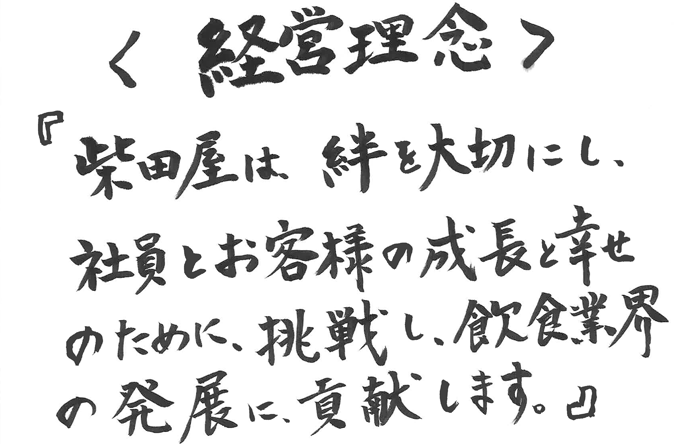 〈経営理念〉
『柴田屋は、絆を大切にし、
社員とお客様の成長と幸せ
のために、挑戦し、飲食業界
の発展に、貢献します。』